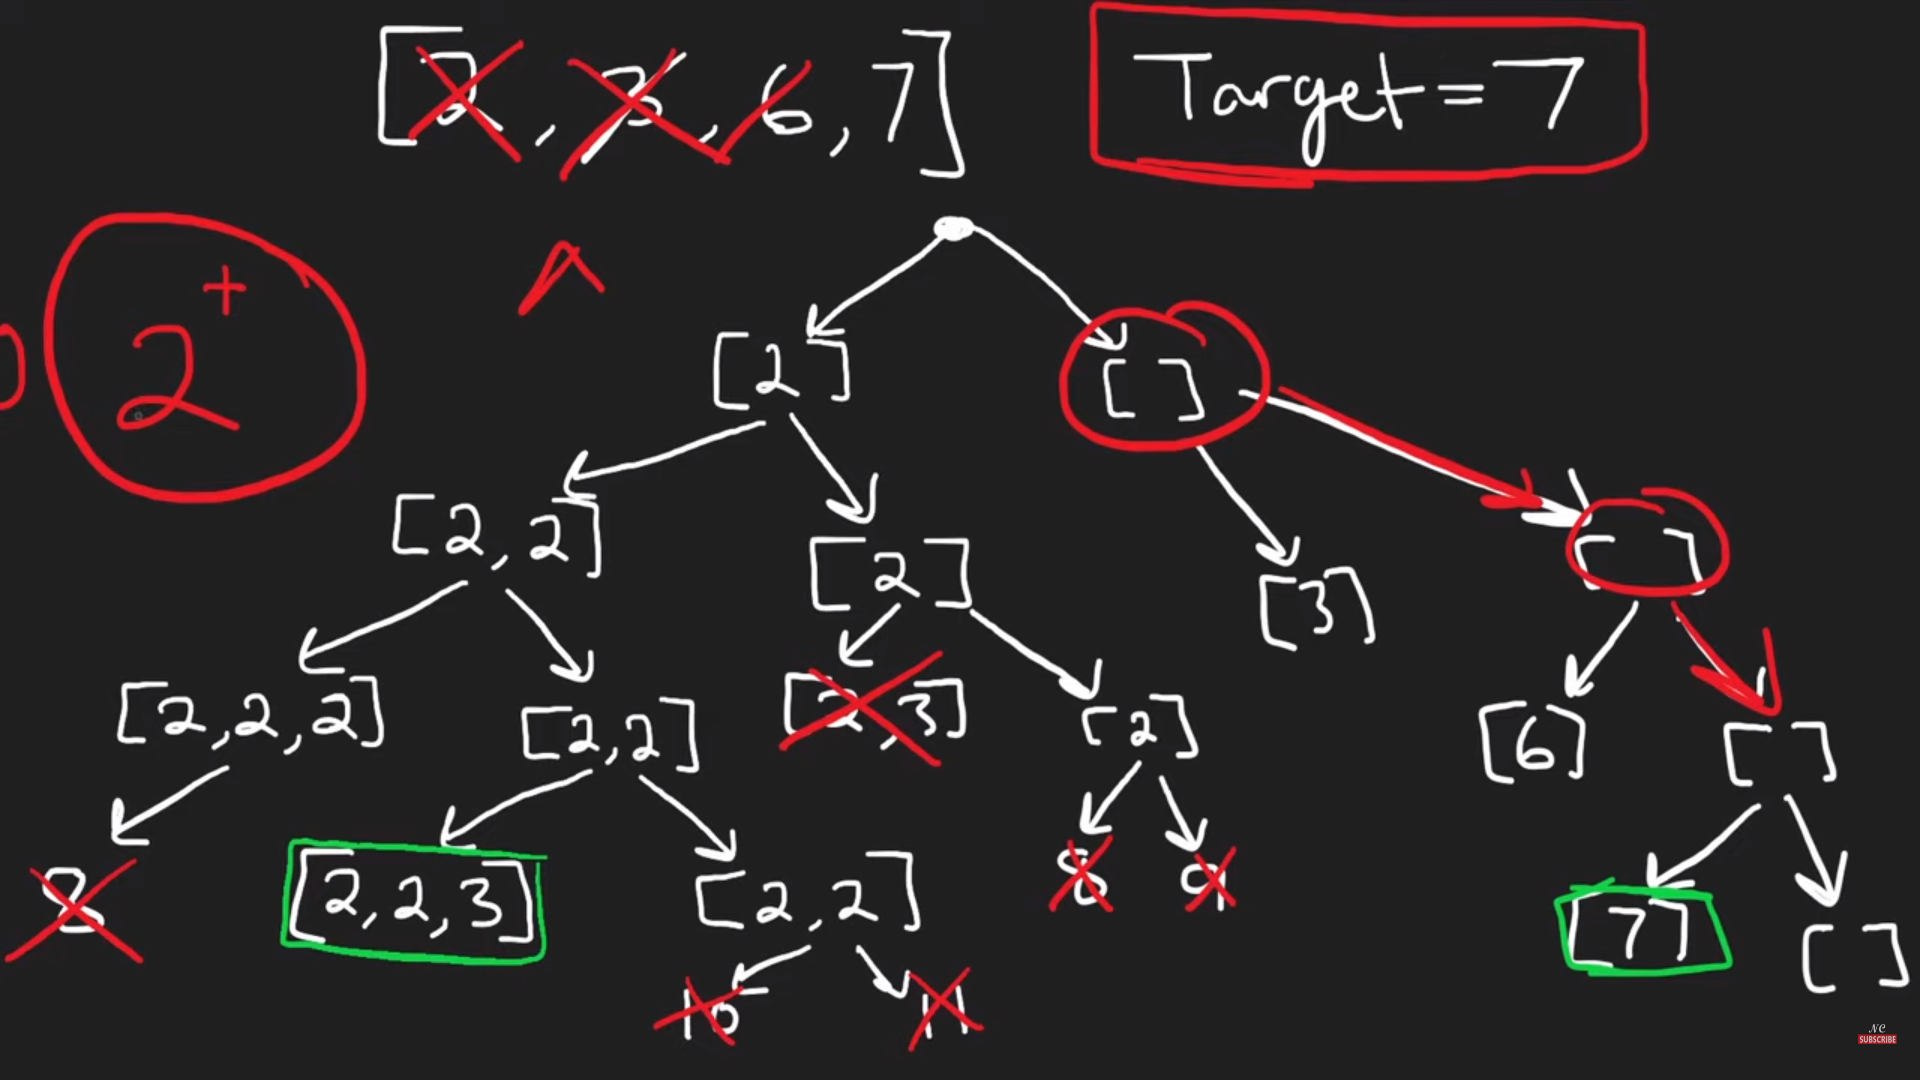 [2, 3, 6, 7]
Target = 7
2+
[2]
[ ]
[2,2]
[2]
[3]
[ ]
[2,2,2]
[2,2]
[2,3]
[2]
[6]
[ ]
8
[2,2,3]
[2,2]
8
9
[7]
[ ]
10
11
NC
SUBSCRIBE